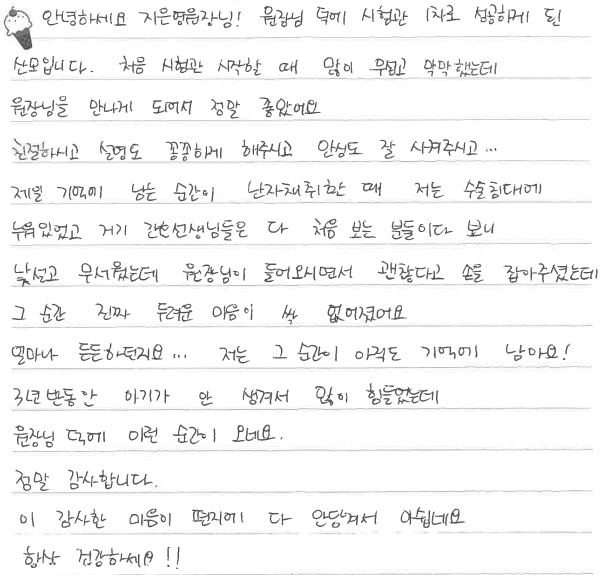 안녕하세요 지은영원장님! 원장님 덕에 시험관 1차로 성공하게 된
산모입니다. 처음 시험관 시작할 때 많이 무섭고 막막했는데
원장님을 만나게 되어서 정말 좋았어요
친절하시고 설명도 꼼꼼하게 해주시고 안심도 잘 시켜주시고...
제일 기억에 남는 순간이 난자채취할 때 저는 수술침대에
누워있었고 거기 간호선생님들은 다 처음 보는 분들이다 보니
낯설고 무서웠는데 원장님이 들어오시면서 괜찮다고 손을 잡아주셨는데
그 순간 진짜 두려운 마음이 싹 없어졌어요
얼마나 든든하던지요... 저는 그 순간이 아직도 기억에 남아요!
3년반동안 아기가 안 생겨서 많이 힘들었는데
원장님 덕에 이런 순간이 오네요.
정말 감사합니다.
이 감사한 마음이 편지에 다 안담겨서 아쉽네요
항상 건강하세요!!